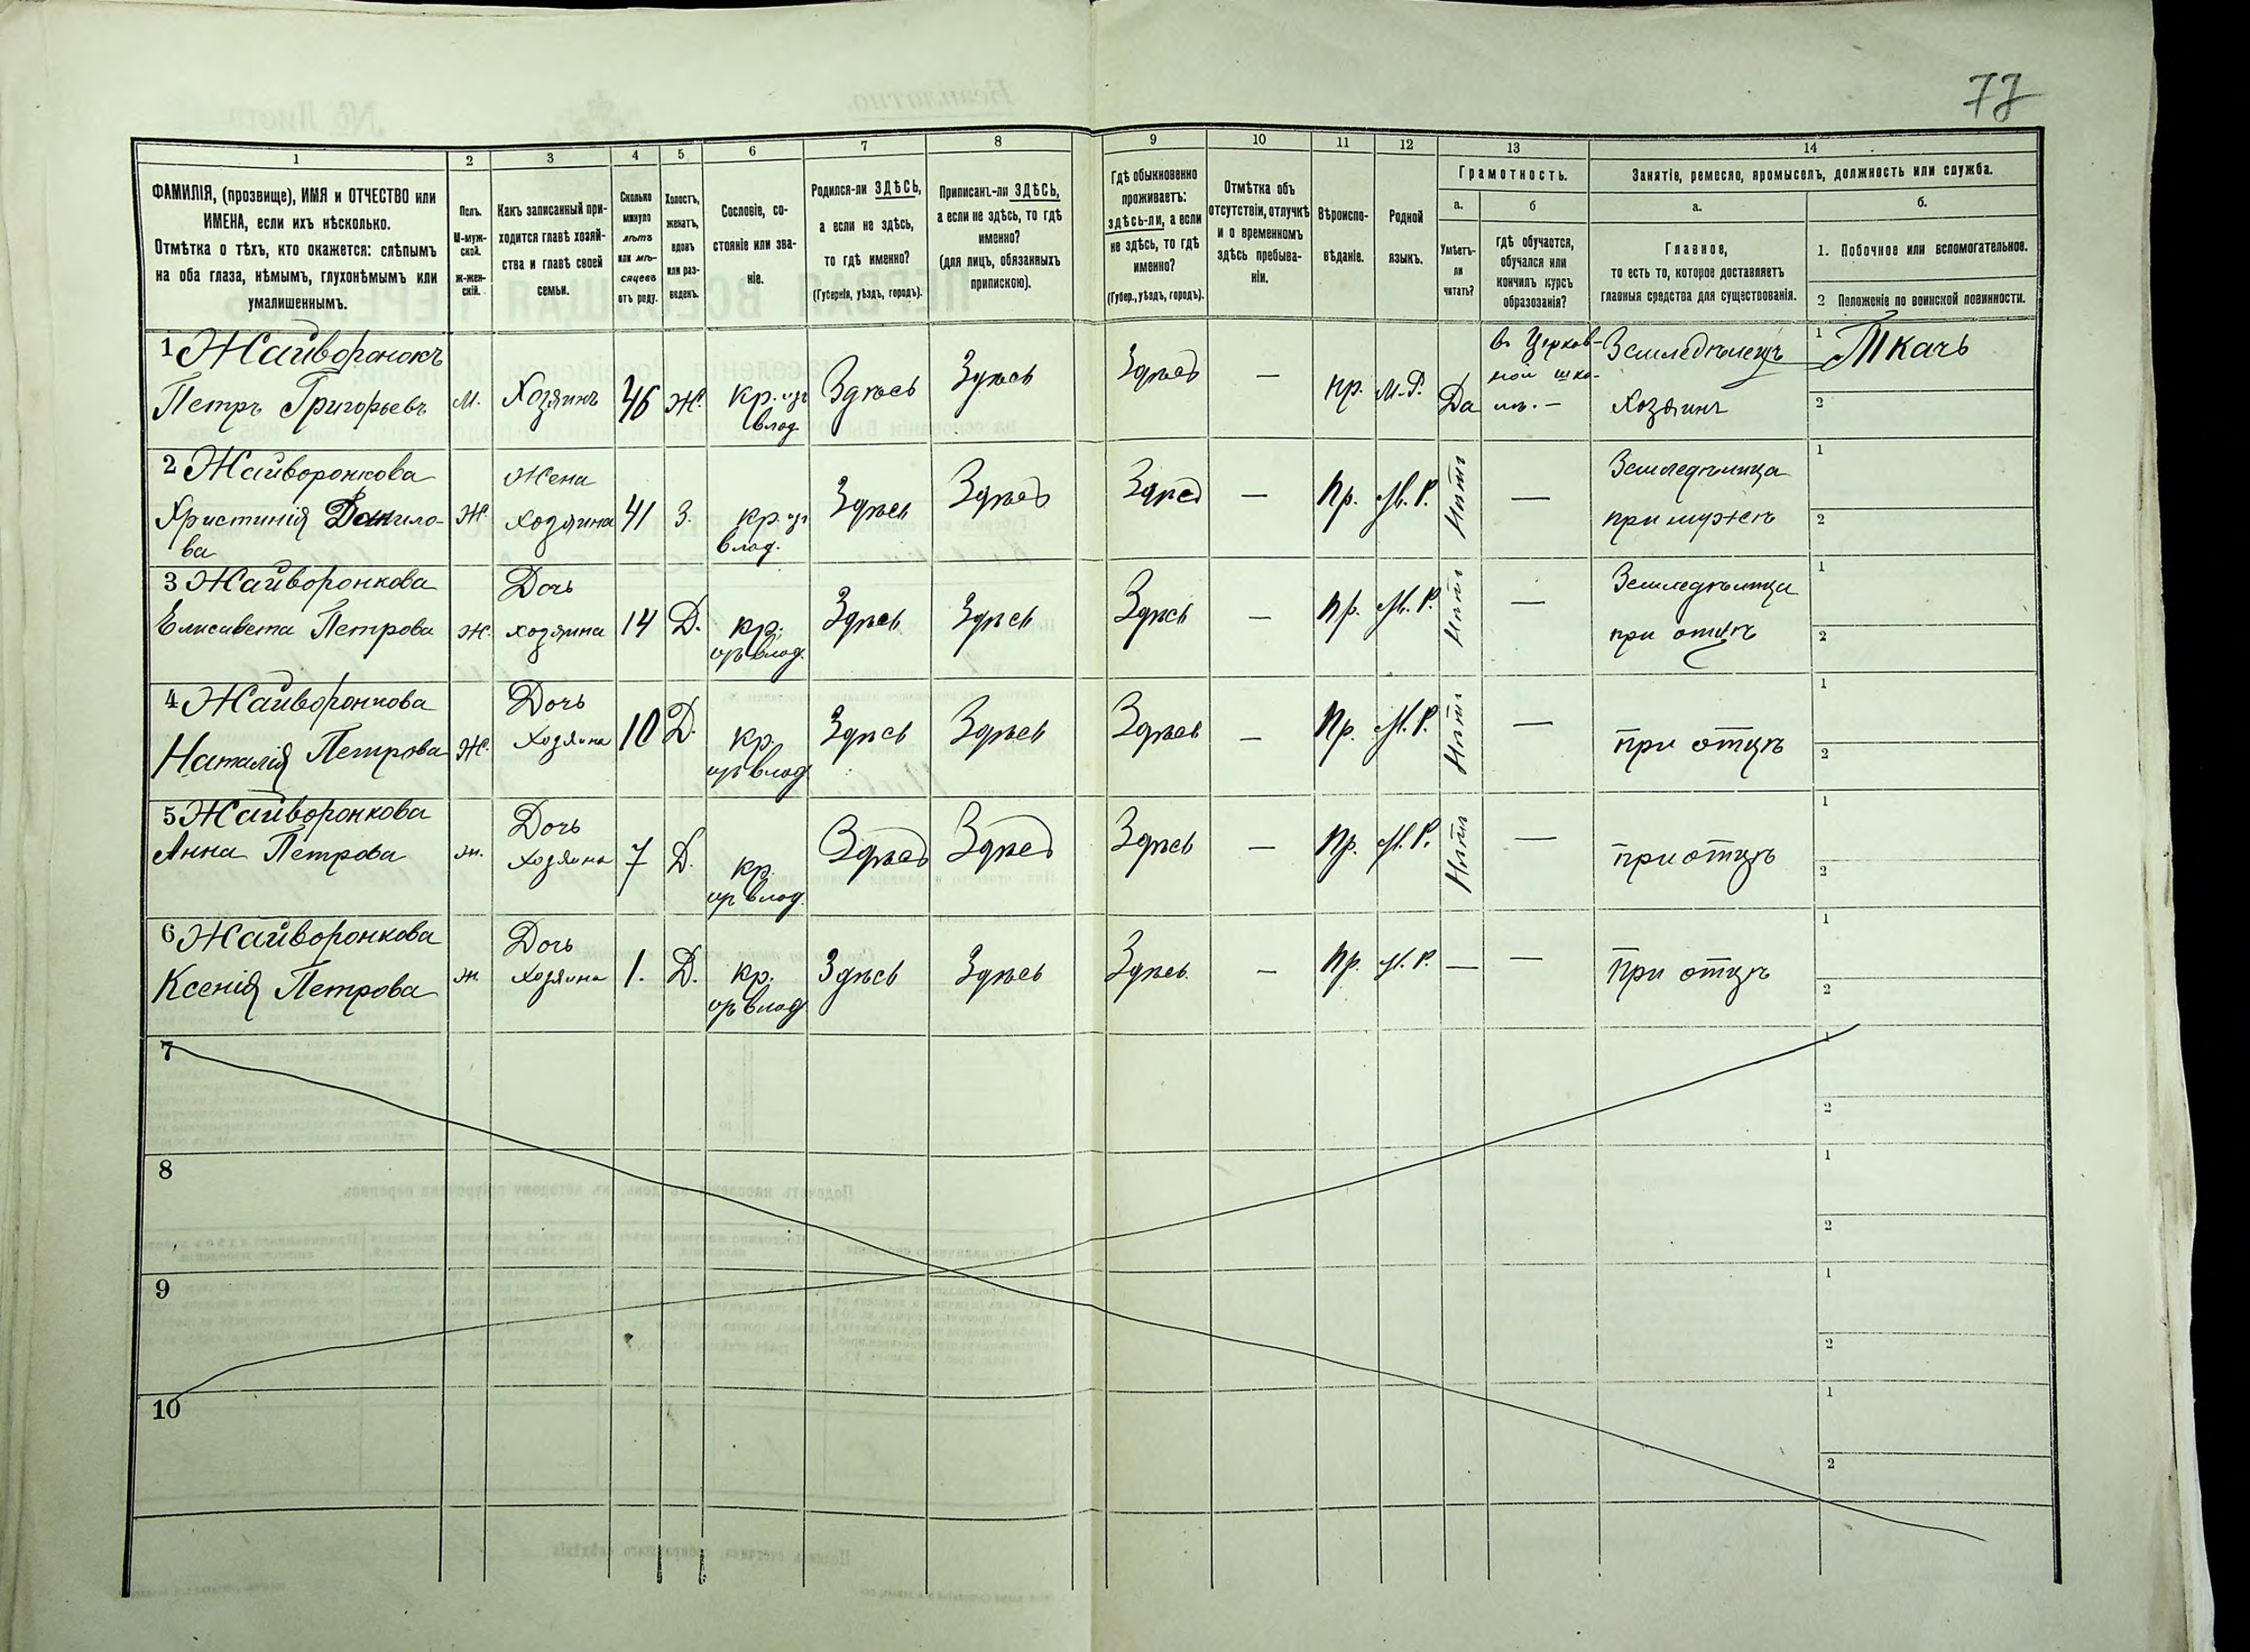 77
1 2 3 4 5 6 7 8 9 10 11 12 13 14
ФАМИЛІЯ, (прозвище), ИМЯ и ОТЧЕСТВО или
ИМЕНА, если ихъ нѣсколько.
Отмѣтка о тѣхъ, кто окажется: слѣпымъ
на оба глаза, нѣмымъ, глухонѣмымъ или
умалишеннымъ.
Полъ.
М-муж-
ской.
ж-жен-
скій.
Какъ записанный при-
ходится главѣ хозяй-
ства и главѣ своей
семьи.
Сколько
минуло
лѣтъ
или мѣ-
сяцевъ
отъ роду.
Холостъ,
женатъ,
вдовъ
или раз-
веденъ.
Сословіе, со-
стояніе или зва-
ніе.
Родился-ли ЗДѢСЬ,
а если не здѣсь,
то гдѣ именно?
(Губернія, уѣздъ, городъ).
Приписанъ-ли ЗДѢСЬ,
а если не здѣсь, то гдѣ
именно?
(для лицъ, обязанныхъ
припискою).
Гдѣ обыкновенно
проживаетъ:
здѣсь-ли, а если
не здѣсь, то гдѣ
именно?
(Губер., уѣздъ, городъ).
Отмѣтка объ
отсутствіи, отлучкѣ
и о временномъ
здѣсь пребыва-
ніи.
Вѣроиспо-
вѣданіе.
Родной
языкъ.
Грамотность.
а.
Умѣетъ-
ли
читать?
б
гдѣ обучается,
обучался или
кончилъ курсъ
образозанія?
Занятіе, ремесло, промыселъ, должность или служба.
а.
Главное,
то есть то, которое доставляетъ
главныя средства для существованія.
б.
1. Побочное или вспомогательное.
2 Положеніе по воинской повинности.
1 Жайворонокъ
Петръ Григорьевъ
м.
Хозяинъ
46
Ж.
кр. изъ
влад.
Здѣсь
Здѣсь
Здѣсь
—
пр.
М.Р.
Да
въ Церков-
ной шко-
лѣ. —
Земледѣлецъ
Хозяинъ
1 Ткачъ
2
2 Жайворонкова
Христинія Данило-
ва
Ж.
Жена
хозяина
41
З.
кр. из
влад.
Здѣсь
Здѣсь
Здѣсь
—
Пр.
М.Р.
Нѣтъ
—
Земледѣлица
при мужѣ
1
2
3 Жайворонкова
Елисавета Петрова
Ж.
Дочь
хозяина
14
Д.
кр.
изъ влад.
Здѣсь
Здѣсь
Здѣсь
—
Пр.
М.Р.
Нѣтъ
—
Земледѣлица
при отцѣ
1
2
4 Жайворонкова
Наталія Петрова
Ж.
Дочь
Хозяина
10
Д.
кр.
изъ влад
Здѣсь
Здѣсь
Здѣсь
—
Пр.
М.Р.
Нѣтъ
—
при отцѣ
1
2
5 Жайворонкова
Анна Петрова
ж.
Дочь
хозяина
7
Д.
кр.
изъ влад.
Здѣсь
Здѣсь
Здѣсь
—
Пр.
М.Р.
Нѣтъ
—
при отцѣ
1
2
6 Жайворонкова
Ксенія Петрова
ж.
Дочь
хозяина
1.
Д.
кр.
изъ влад
Здѣсь
Здѣсь
Здѣсь.
—
Пр.
М.Р.
—
—
При отцѣ
1
2
7
1
2
8
1
2
9
1
2
10
1
2